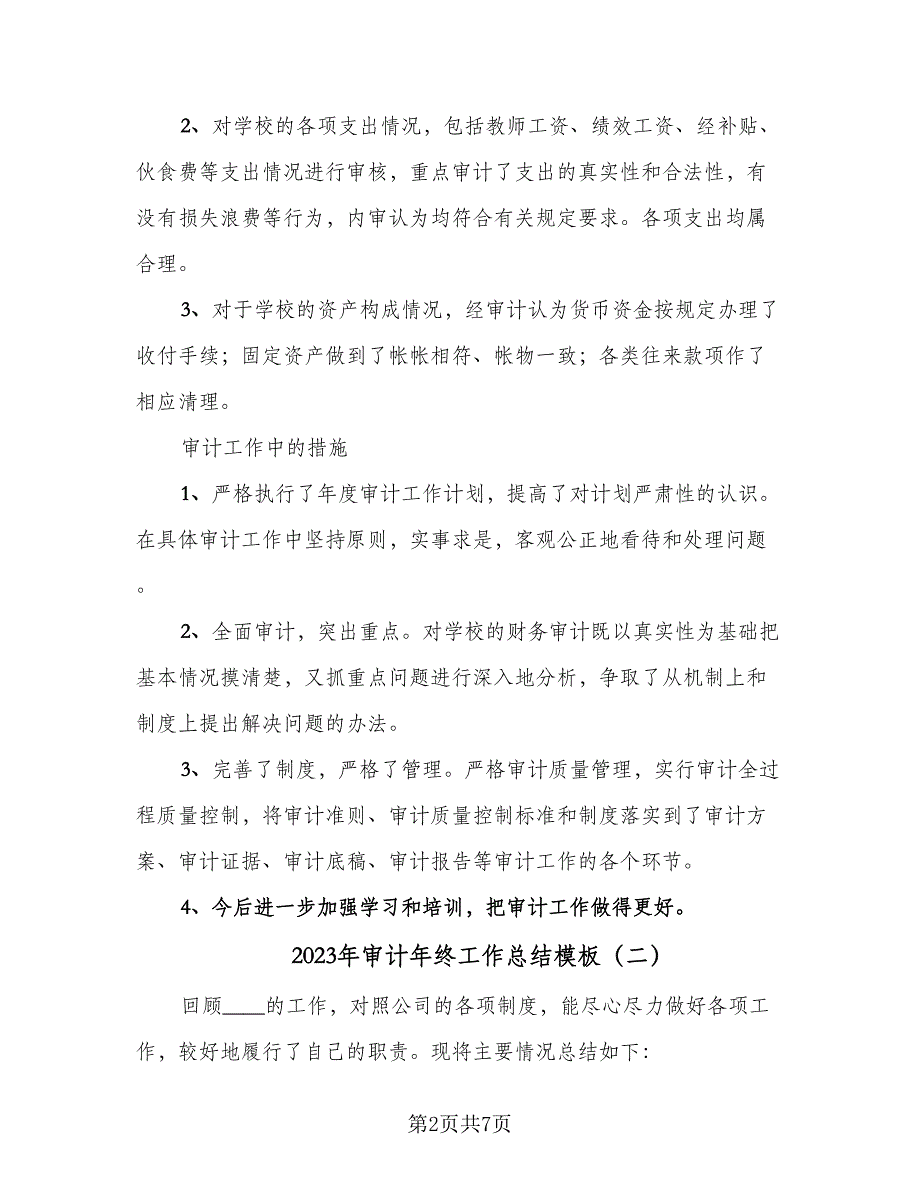 2、对学校的各项支出情况，包括教师工资、绩效工资、经补贴、
伙食费等支出情况进行审核，重点审计了支出的真实性和合法性，有
没有损失浪费等行为，内审认为均符合有关规定要求。各项支出均属
合理。
3、对于学校的资产构成情况，经审计认为货币资金按规定办理了
收付手续；固定资产做到了帐帐相符、帐物一致；各类往来款项作了
相应清理。
审计工作中的措施
1、严格执行了年度审计工作计划，提高了对计划严肃性的认识。
在具体审计工作中坚持原则，实事求是，客观公正地看待和处理问题
。
2、全面审计，突出重点。对学校的财务审计既以真实性为基础把
基本情况摸清楚，又抓重点问题进行深入地分析，争取了从机制上和
制度上提出解决问题的办法。
3、完善了制度，严格了管理。严格审计质量管理，实行审计全过
程质量控制，将审计准则、审计质量控制标准和制度落实到了审计方
案、审计证据、审计底稿、审计报告等审计工作的各个环节。
4、今后进一步加强学习和培训，把审计工作做得更好。
2023年审计年终工作总结模板（二）
回顾____的工作，对照公司的各项制度，能尽心尽力做好各项工
作，较好地履行了自己的职责。现将主要情况总结如下：
第2页共7页